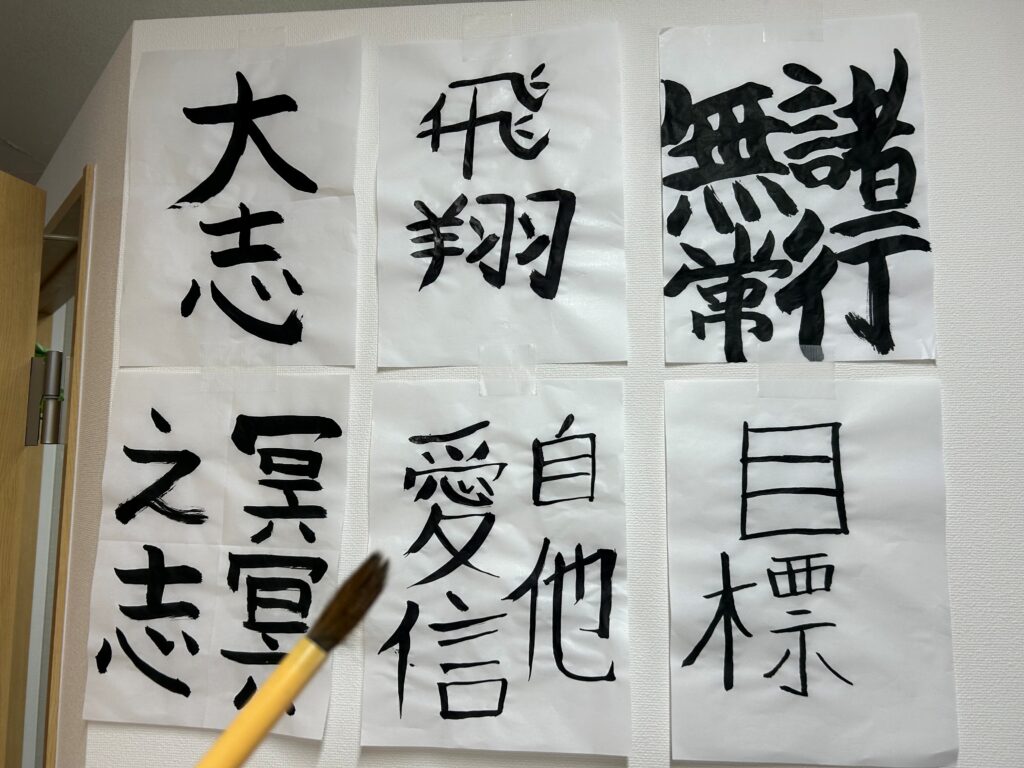 大志
飛翔
諸行
無常
冥冥
之志
自他
愛信
目標